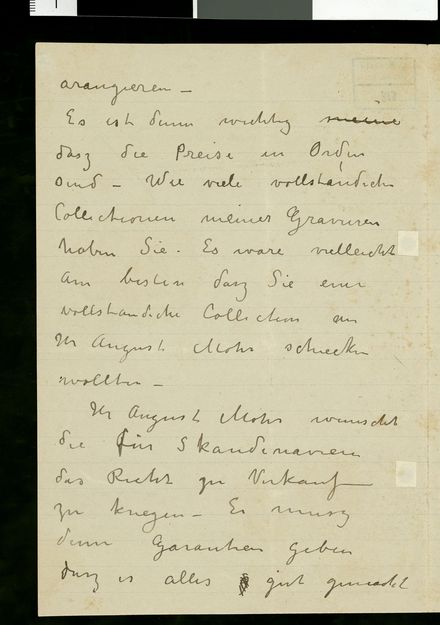 arangieren –
Es ist dann wichtig meine
dasz die Preise in Orden
sind – Wie viele vollständiche
Collectionen meiner Gravuren
haben Sie. Es ware vielleicht
am besten dasz Sie eine
vollständiche Collection an
Hr August Mohr schicken
wollten –
Hr August Mohr wunscht
die für Skandenavien
das Recht zu Verkauf
zu kriegen – Er musz
dann Garantien geben
dasz es alles gut gemacht